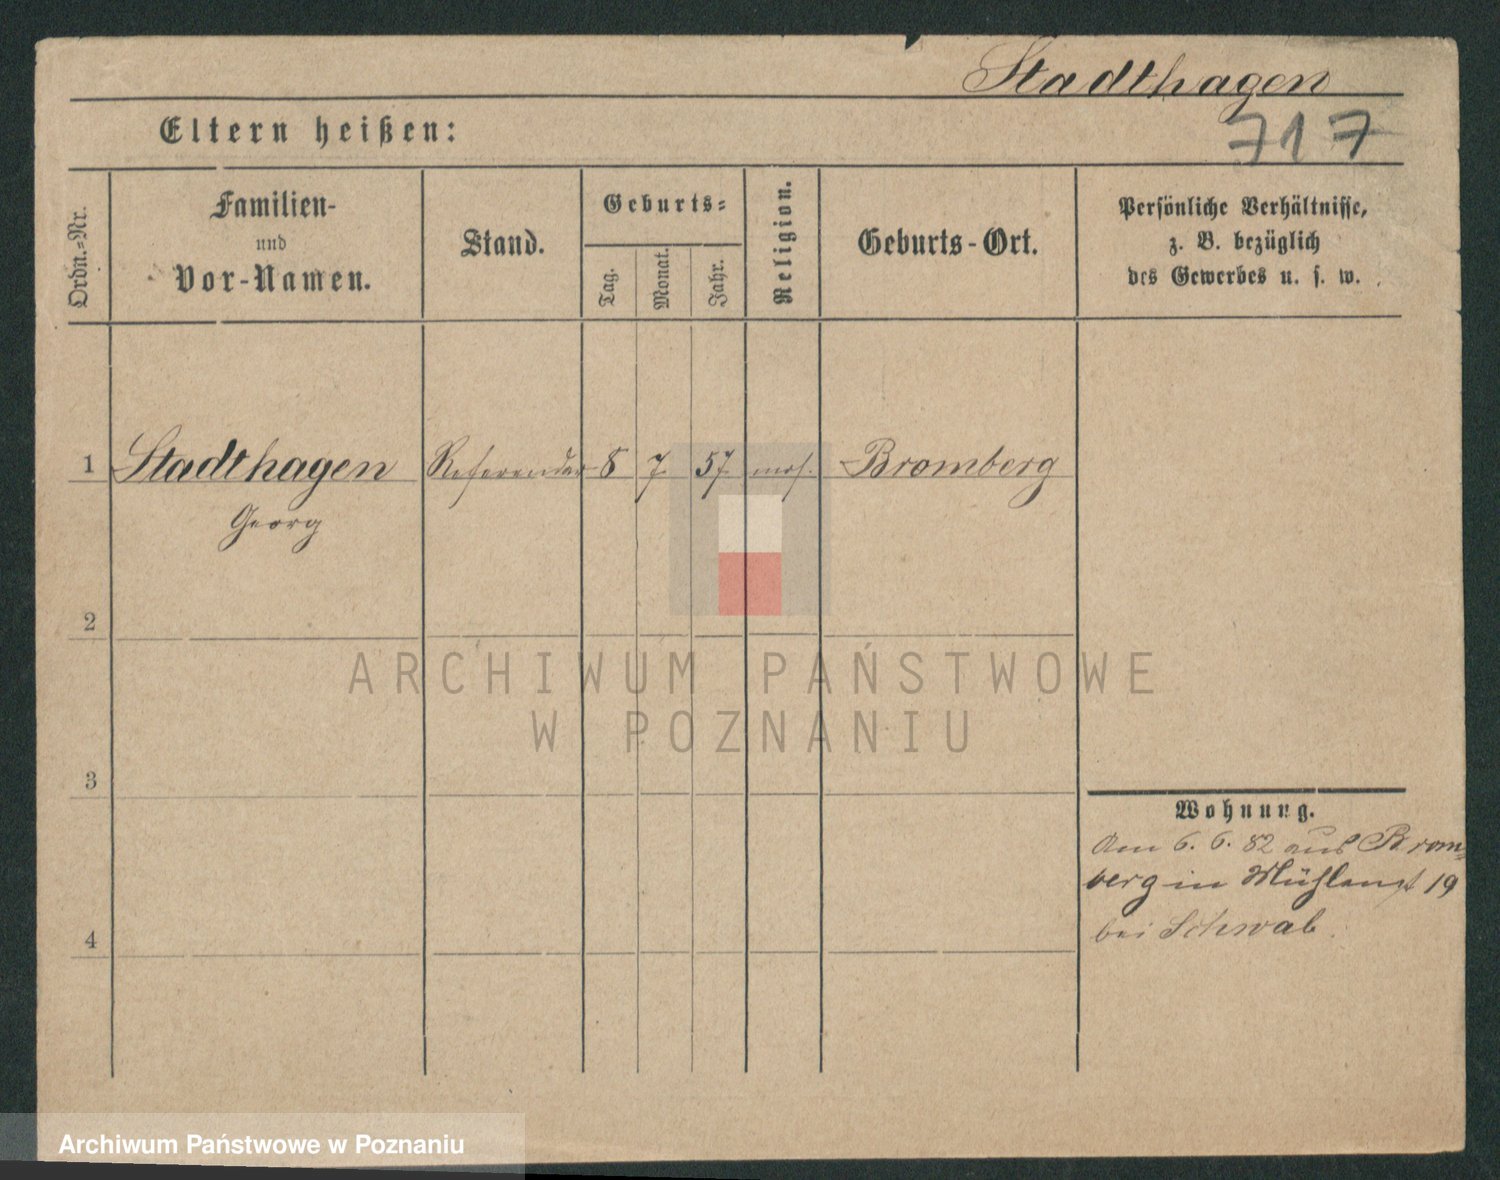 Stadthagen
Eltern heißen:
717
Ordn.-Nr.
Familien-
und
Vor-Namen.
Stand.
Geburts-
Tag.
Monat.
Jahr.
Religion.
Geburts-Ort.
Persönliche Verhältnisse,
z. B. bezüglich
des Gewerbes u. s. w.
1 Stadthagen Referendar 8 7. 57. mos. Bromberg
Georg
2
ARCHIWUM PAŃSTWOWE
W POZNANIU
3
Wohnung.
Am 6. 6. 82 aus Brom-
berg in Mühlenst 19
4
bei Schwab.
Archiwum Państwowe w Poznaniu